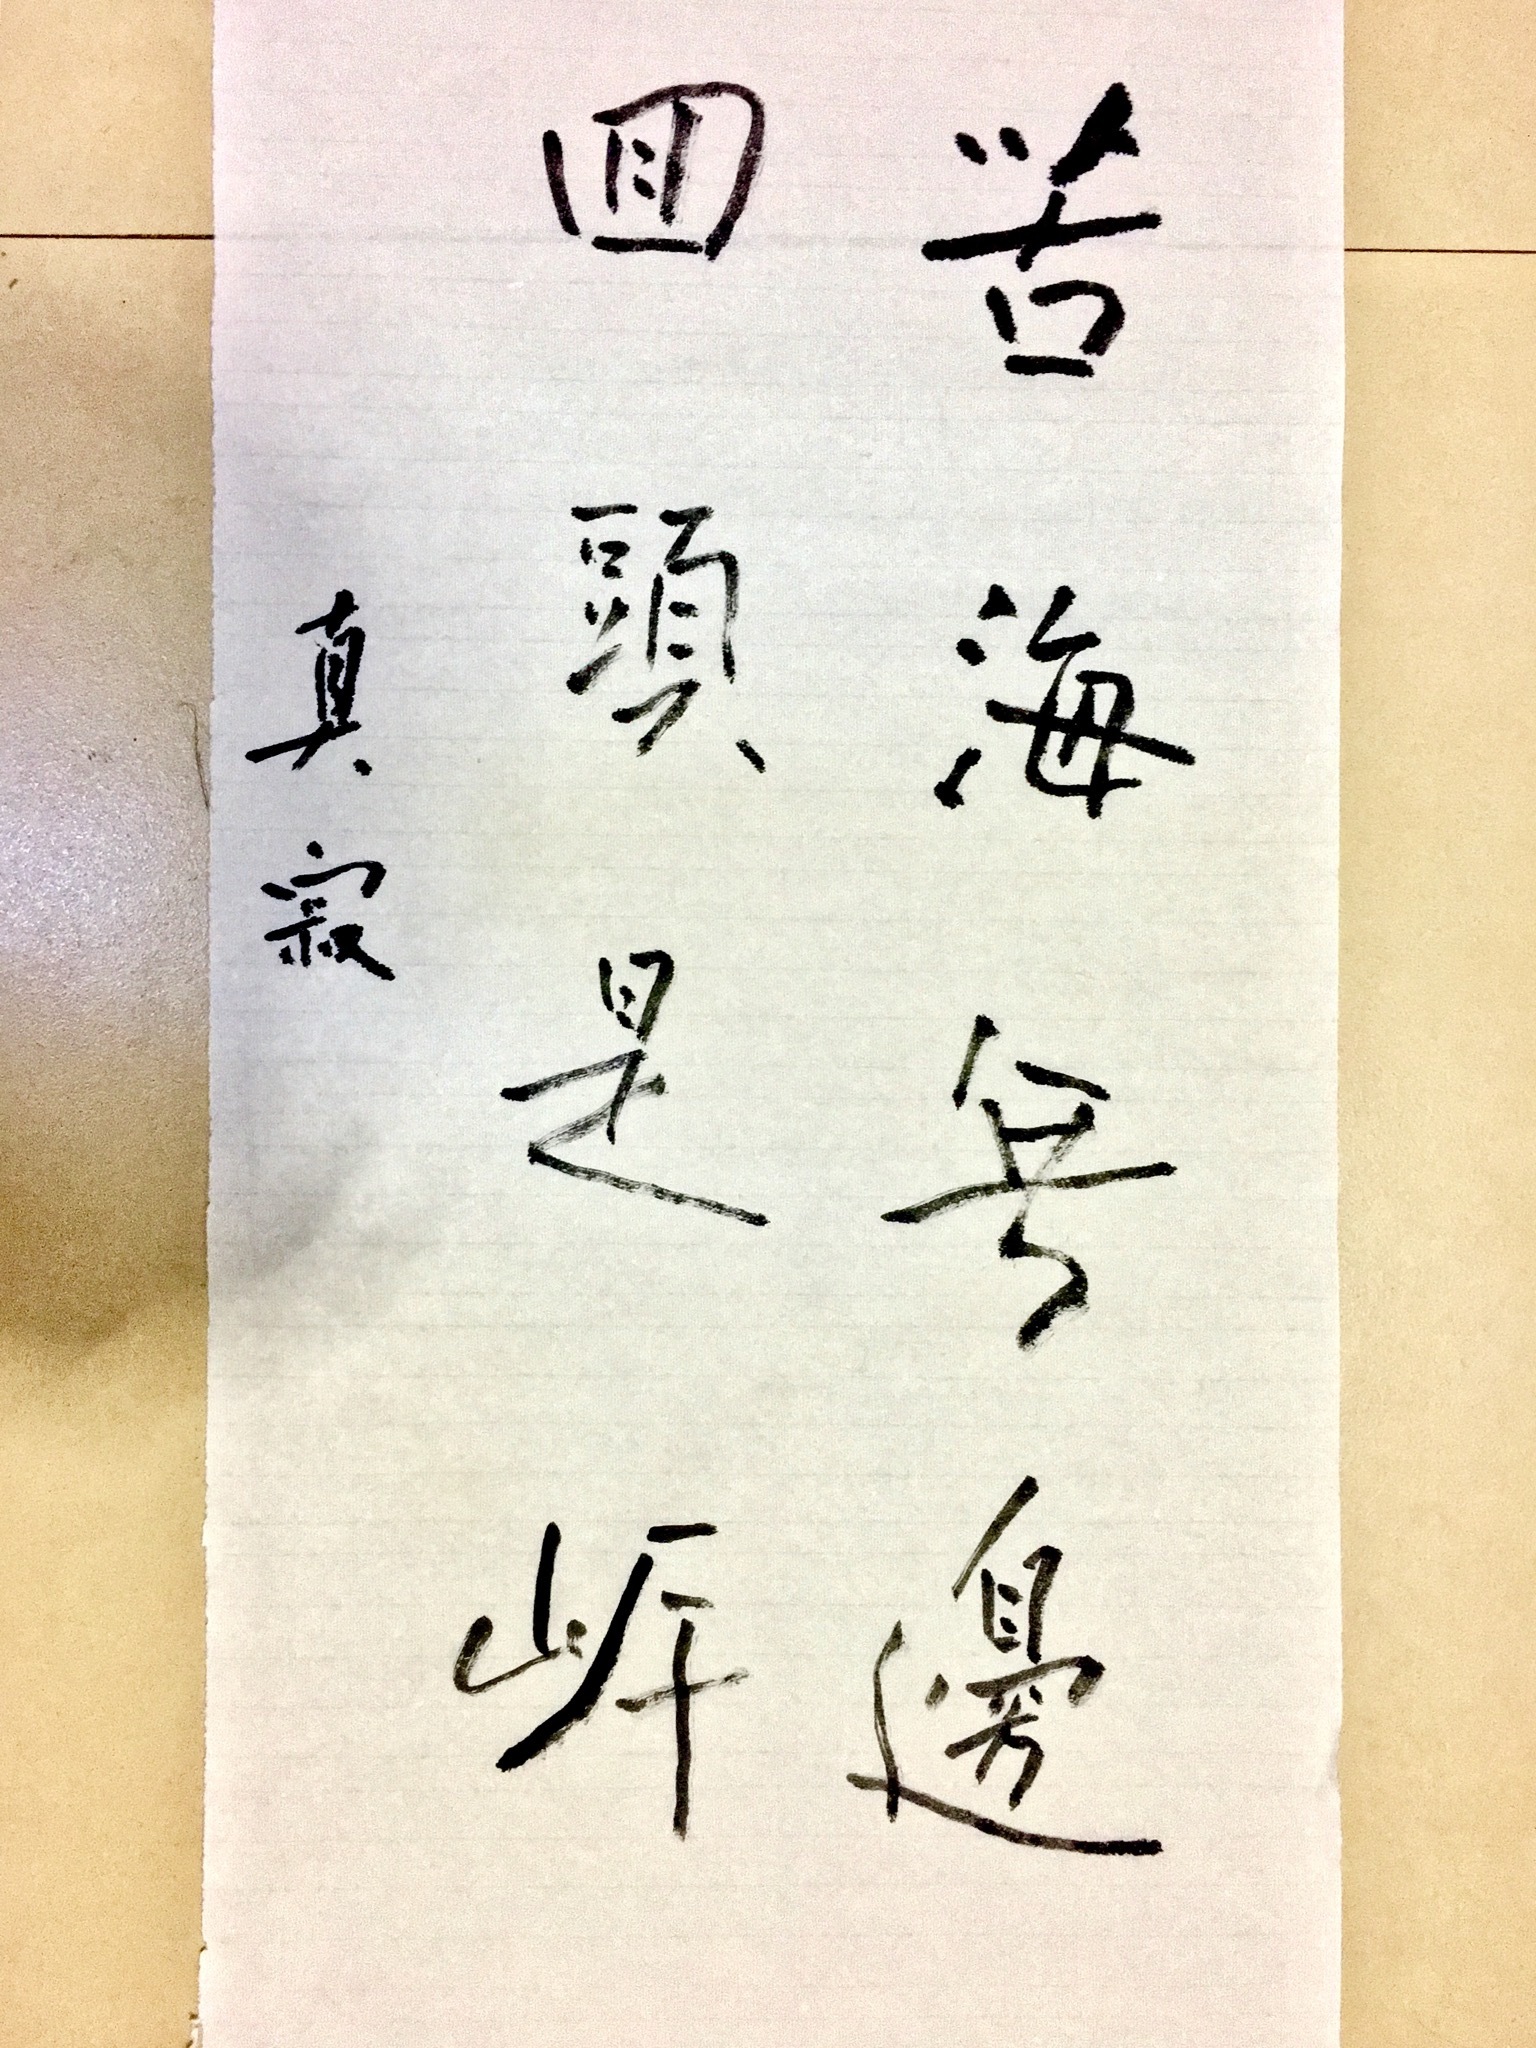 苦海無邊
回頭是岸
真寂